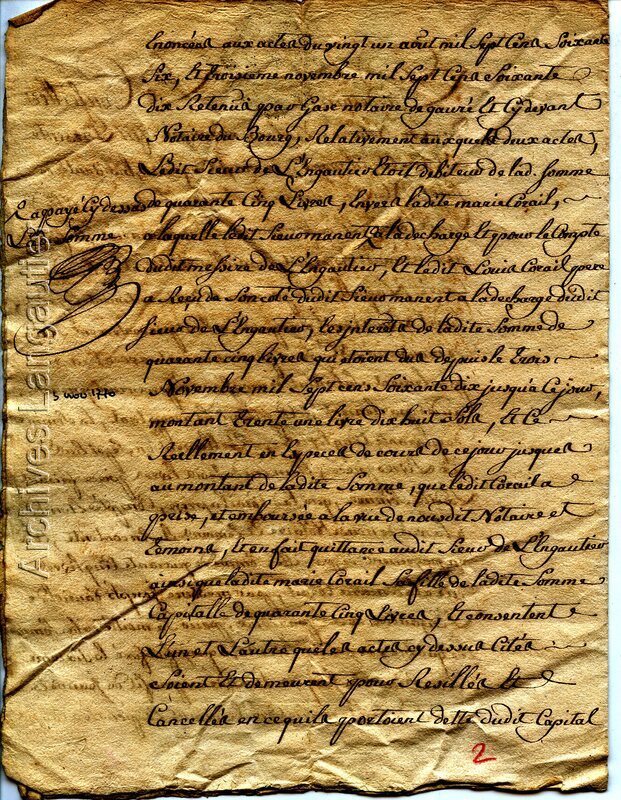 Enoncéés aux actes du vingt un août mil Sept Cens Soixante
Six, Et Troisième novembre mil Sept Cens Soixante
dix Retenus par Gase notaire de gauré Et Cy devant
Notaire du Bourg, Relativement auxquels deux actes,
Ledit Sieur de L'Engautier Etoit débiteur de lad. Somme
de quarante Cinq Livres, Envers ladite marie Corail,
a laquelle ledit Sieur manent a la decharge Et pour le Compte
dudit messire de L'Engautier, Et ledit Louis Corail pere
a Reçu de Son coté dudit Sieur manent a la decharge dudit
Sieur de L'Engautier, les interets de ladite Somme de
quarante cinq livres qui etoient dus depuis le Trois
Novembre mil Sept cens Soixante dix jusqu'a Ce jour,
montant Trente une livre dix huit sols, Et Ce
Reellement en Especes de cours de ce jour jusques
au montant de ladite Somme, que ledit Corail a
prise, et emboursée a la vue de nousdit Notaire et
Temoins, Et en fait quittance audit Sieur de L'Engautier
ainsi que ladite marie Corail Sa fille de ladite Somme
Capitalle de quarante Cinq Livres, Et consentent
L'un et L'autre que les actes cy dessus Cités
Soient Et demeurent pour Resiliés Et
Cancellés en ce qu'ils portoient dette dudit Capital
a payé Cy dessus
Somme
5 nov 1770
2
Archives Langautier